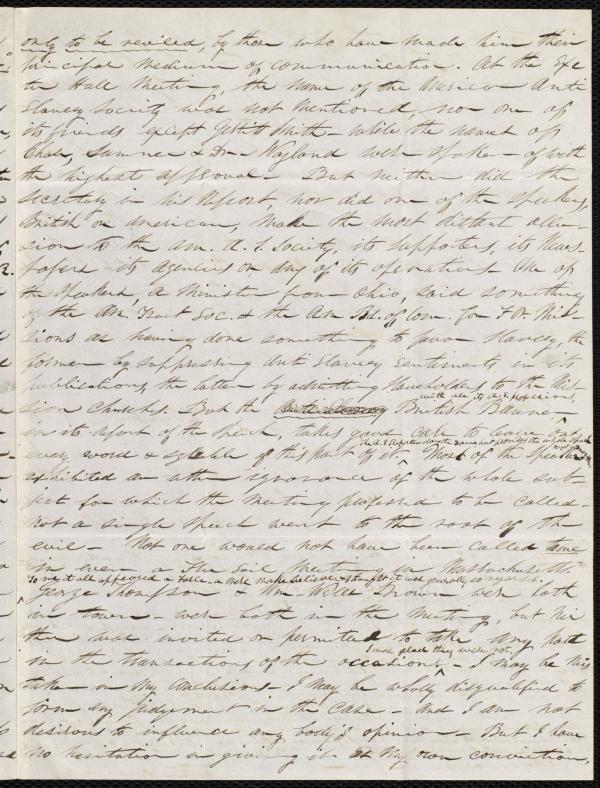 only to be reviled, by those who have made him their
principal medium of communication. At the Exe
ter Hall Meeting, the name of the American Anti
Slavery Society was not mentioned, nor one of
its friends except Gerrit Smith - while the names of
Chase, Sumner & Dr. Wayland were spoken of with
the highest approval - But neither did the
Secretary in his Report, nor did one of the Speakers,
British or American, make the most distant allu-
sion to the Am. A. S. Society, its supporters, its News-
papers its agencies or any of its operations - One of
the Speakers, a Minister from Ohio, said something
of the Am. Tract Soc. & the Am Bd. of Com. for F. Mis-
sions as having done something to favor Slavery, the
former by suppressing Anti Slavery sentiments in its
publications, the latter by admitting slaveholders to the Mis-
with all its A.S. professions,
sion Churches. But the British Banner
in its report of the speech, takes good care to leave out
The A.S. Reporter on the somewhat promises the whole speech
every word & syllable of this part of it. Most of the Speakers
exhibited an utter ignorance of the whole sub-
ject for which the meeting professed to be called -
not a single speech went to the root of the
evil - Not one would not have been called tame
in even a Free soil meeting in Massachusetts.
To me it all appeared a Farce - a mere make believe & I thought it was generally so regarded.
George Thompson & Wm. Wells Brown were both
in town - were both in the Meeting, but nei
ther was invited or permitted to take any part
I was glad they were not,
in the transactions of the occasion - I may be mis
taken in my conclusions - I may be wholly disqualified to
form any judgement in the case - and I am not
desirous to influence any body's opinion - But I have
no hesitation in giving it as my own conviction,